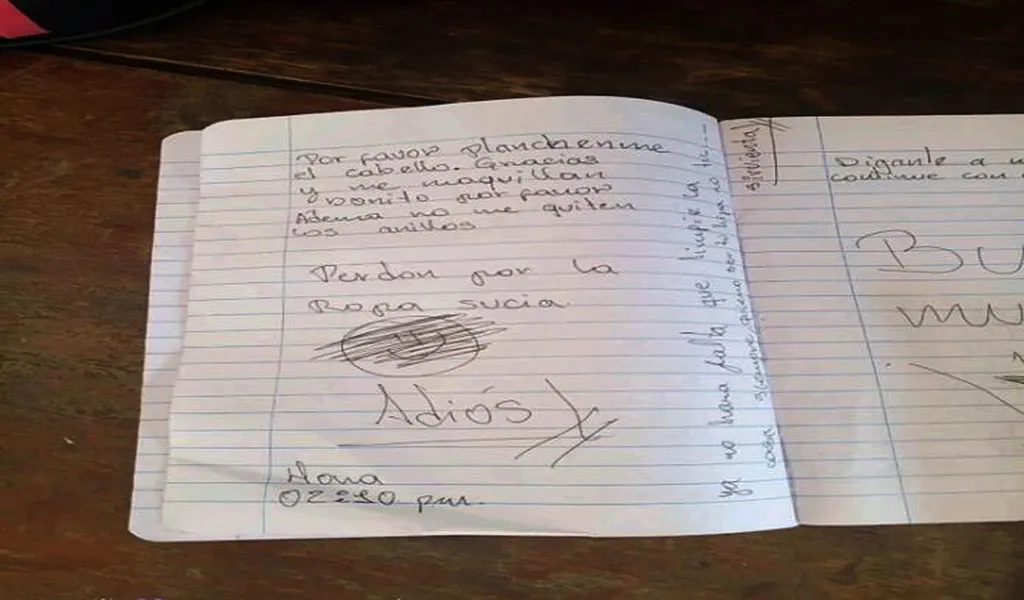 Por favor planchenme
el cabello. Gracias
y me maquillan
bonito por favor
Adema no me quiten
los anillos
Perdon por la
Ropa sucia
Adiós
Hora
02:10 pm.
ya no hara falta que limpie la
casa siempre pienso ser tu hija no tu....
sirvienta
Digante a u
continue con
BU
mu